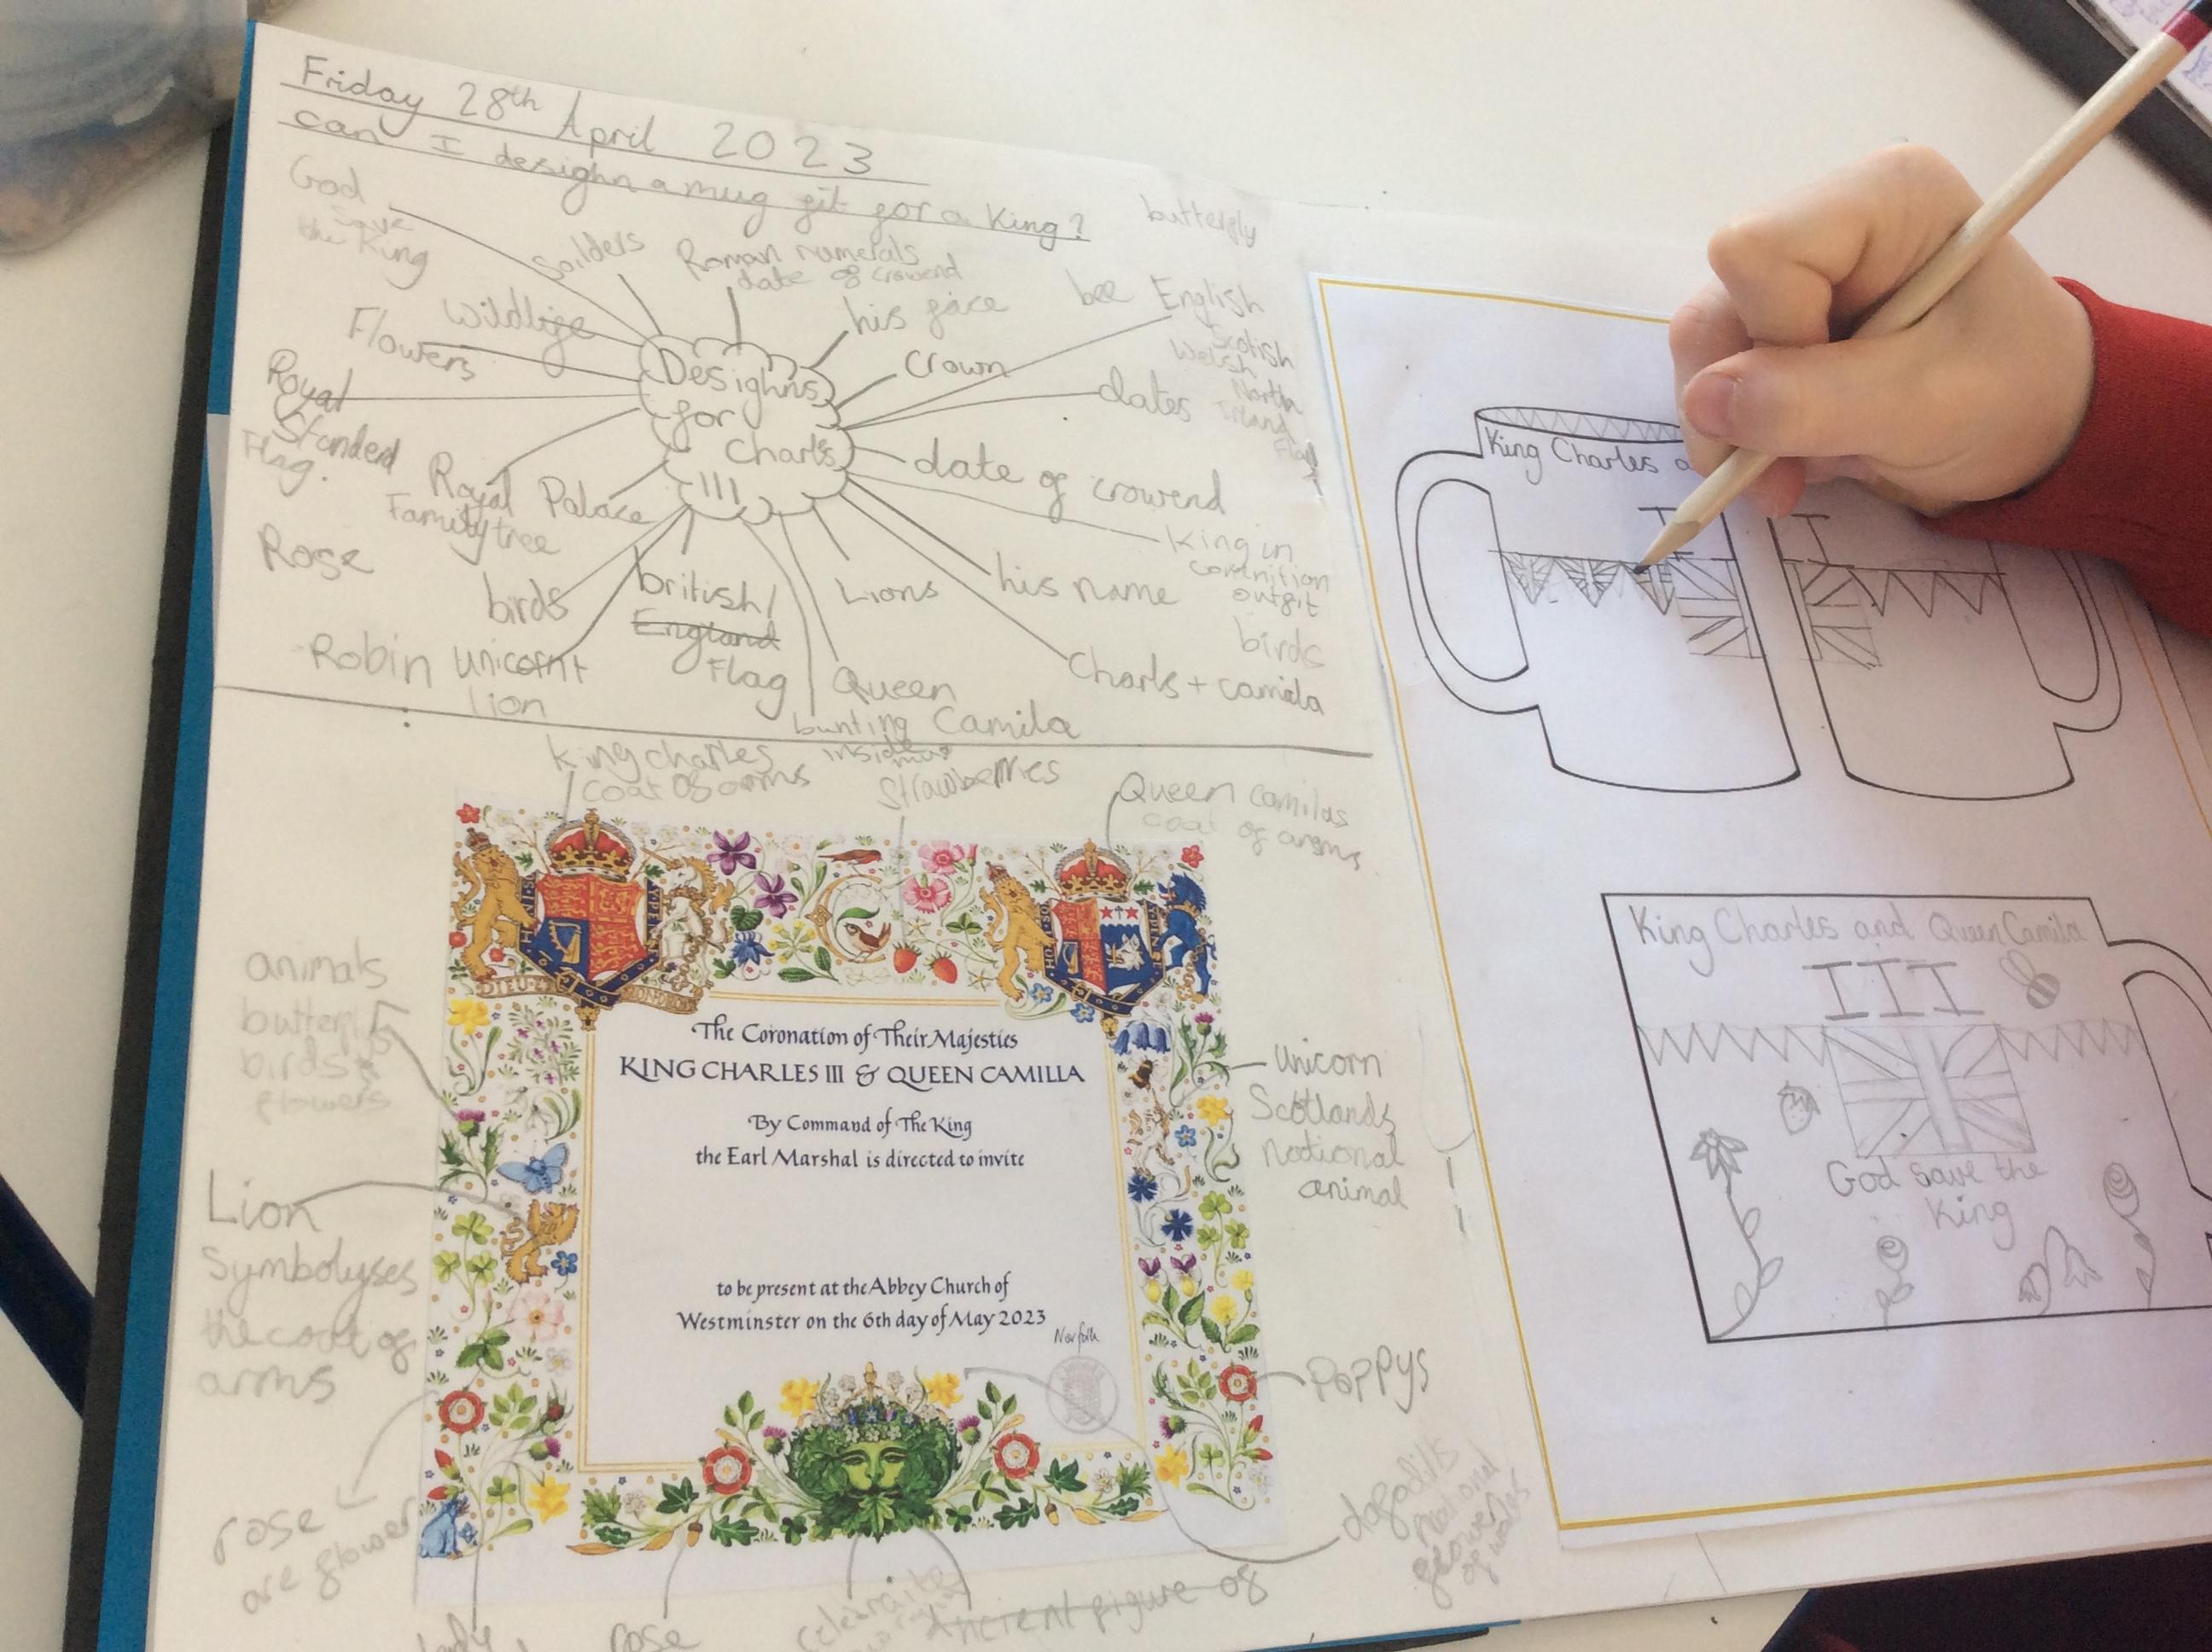 Friday 28th April 2023
can I desighn a mug git for a King?
God
save
the King
Soilders
Roman numerals
date of crowend
his face
butterfly
bee
English
Scotish
Welsh
North
Irland
Flag
Wildlife
Flowers
Crown
dates
Royal
Standerd
Flag.
Desighns
for
Charls
III
date of crowend
Royal
Family tree
Palace
King in
cornition
outfit
Rose
birds
british/
England
Flag
Lions
his name
birds
Robin
unicorn +
lion
Queen
Camila
bunting
inside
mug
Charls + camila
King charles
coat of arms
strawberries
Queen camilas
coat of arems
DIEU ET
The Coronation of Their Majesties
KING CHARLES III & QUEEN CAMILLA
By Command of The King
the Earl Marshal is directed to invite
to be present at the Abbey Church of
Westminster on the 6th day of May 2023
Norfolk
animals
birds
flowers
Lion
Symbolyses
the coat of
arms
rose
are flower
unicorn
Scotlands
national
animal
Poppys
dafodils
national
flowers
of wales
rose
Ancient figure of
King Charles a
I
I
King Charles and Queen Camila
III
God save the
King